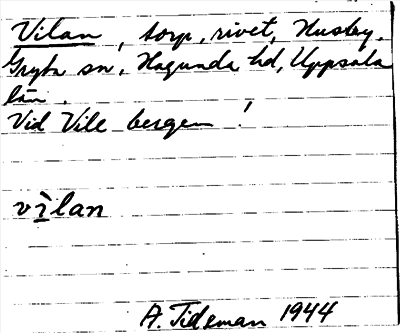 Vilan, torp, rivet, Husby.
Gryta sn, Hagunda hd, Uppsala
län.
Vid Vile bergen!
vìlan
A. Tideman 1944